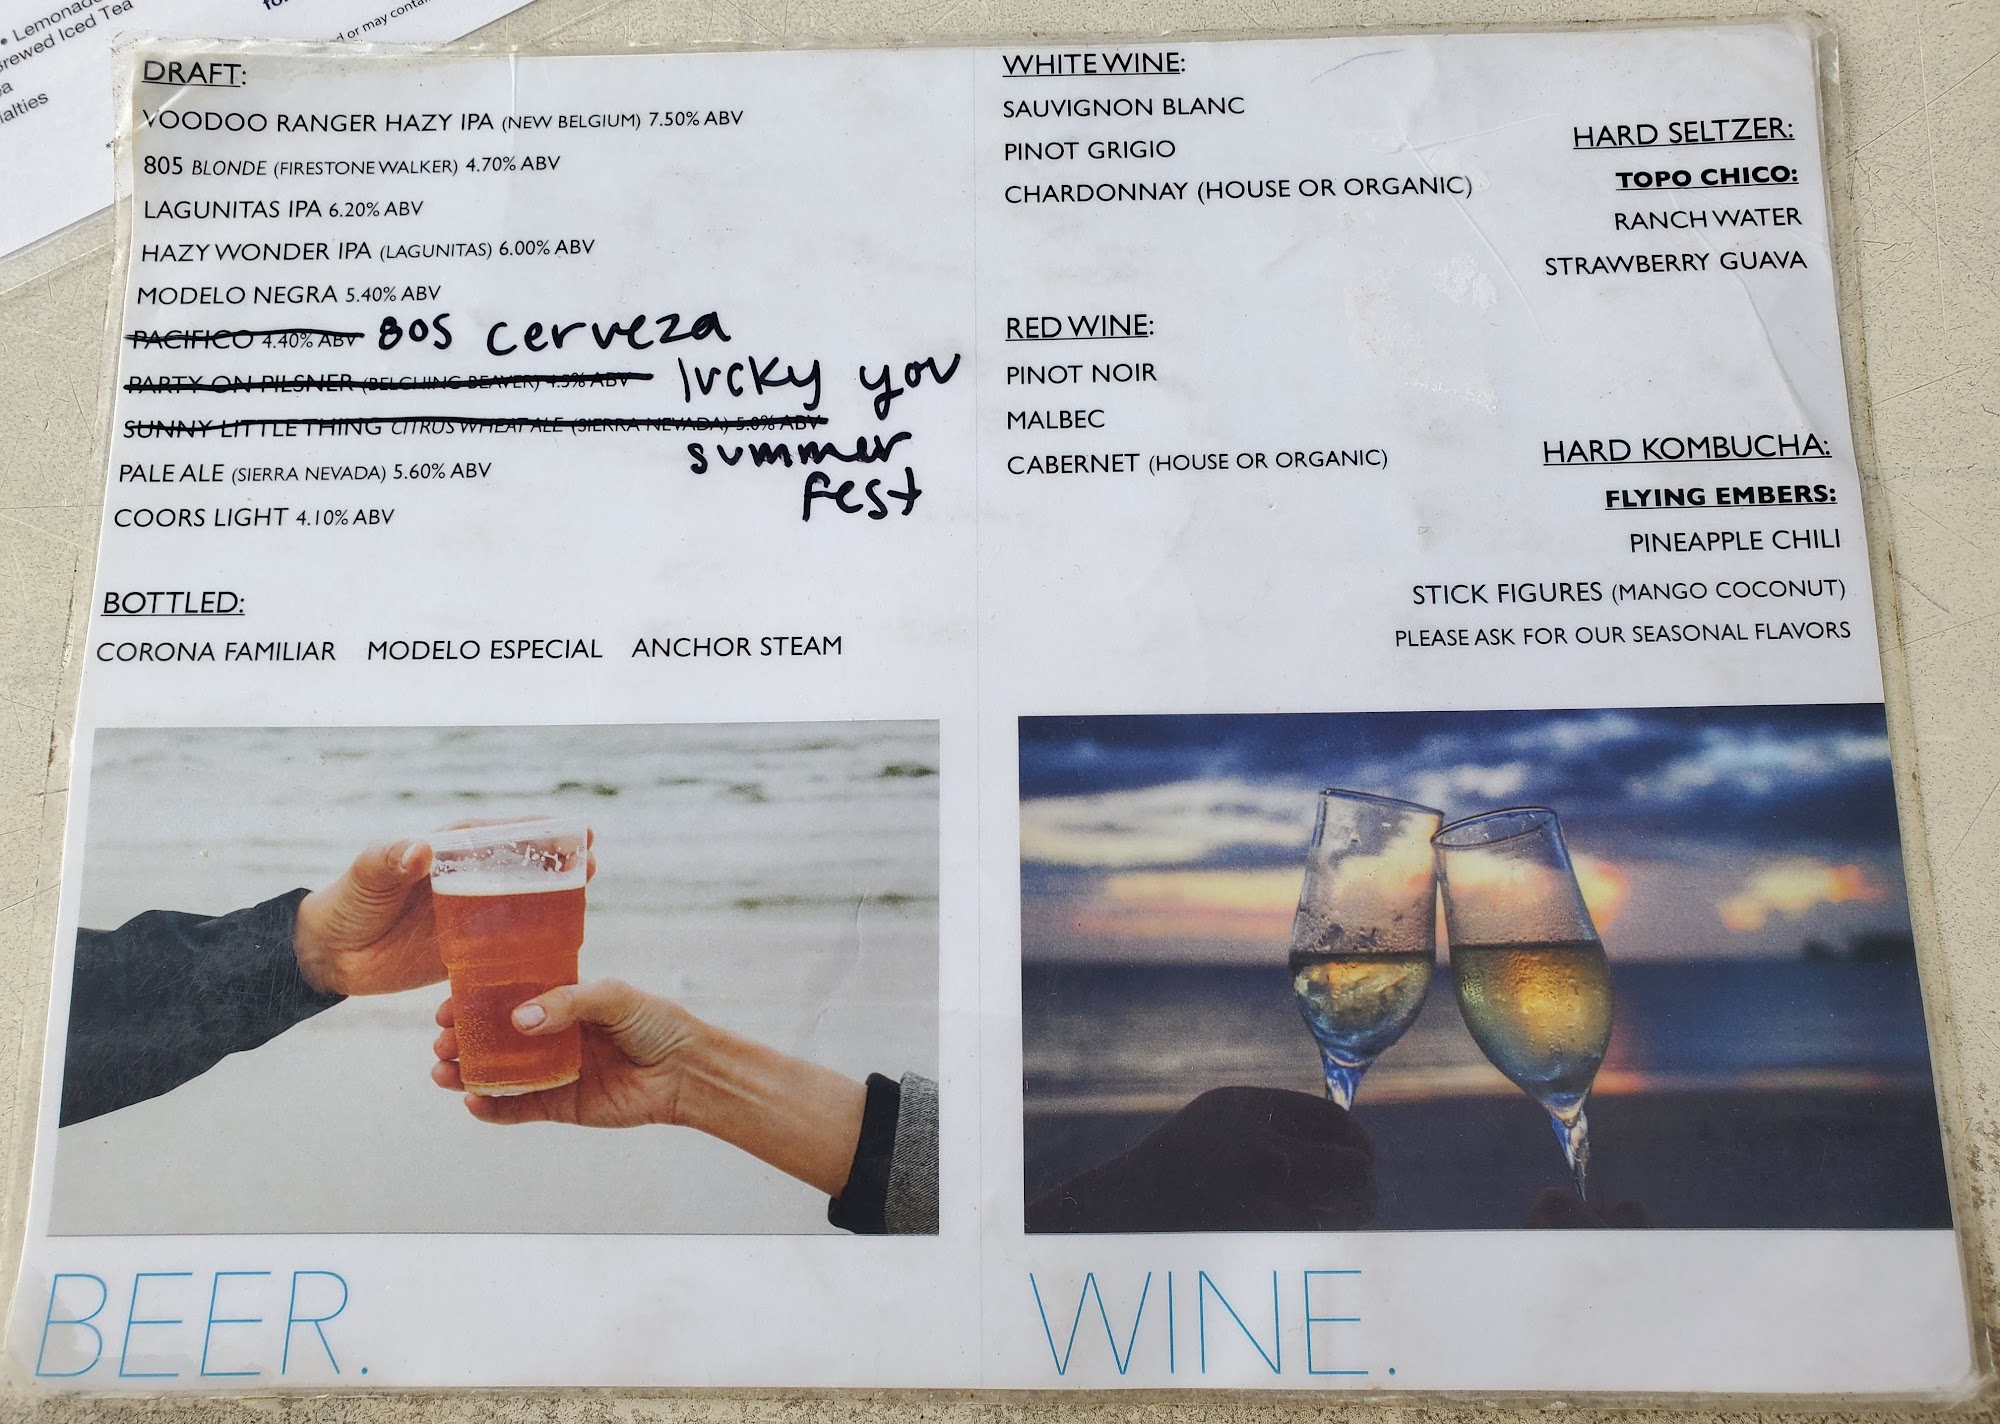 • Lemonade
Brewed Iced Tea
DRAFT:
VOODOO RANGER HAZY IPA (NEW BELGIUM) 7.50% ABV
805 BLONDE (FIRESTONE WALKER) 4.70% ABV
LAGUNITAS IPA 6.20% ABV
HAZY WONDER IPA (LAGUNITAS) 6.00% ABV
MODELO NEGRA 5.40% ABV
PACIFICO 4.40% ABV 805 cerveza
PARTY ON PILSNER (BELCHING BEAVER) 4.5% ABV lucky you
SUNNY LITTLE THING CITRUS WHEAT ALE (SIERRA NEVADA) 5.0% ABV
summer
PALE ALE (SIERRA NEVADA) 5.60% ABV
fest
COORS LIGHT 4.10% ABV
BOTTLED:
CORONA FAMILIAR MODELO ESPECIAL ANCHOR STEAM
BEER.
WHITE WINE:
SAUVIGNON BLANC
PINOT GRIGIO
CHARDONNAY (HOUSE OR ORGANIC)
RED WINE:
PINOT NOIR
MALBEC
CABERNET (HOUSE OR ORGANIC)
HARD SELTZER:
TOPO CHICO:
RANCH WATER
STRAWBERRY GUAVA
HARD KOMBUCHA:
FLYING EMBERS:
PINEAPPLE CHILI
STICK FIGURES (MANGO COCONUT)
PLEASE ASK FOR OUR SEASONAL FLAVORS
WINE.